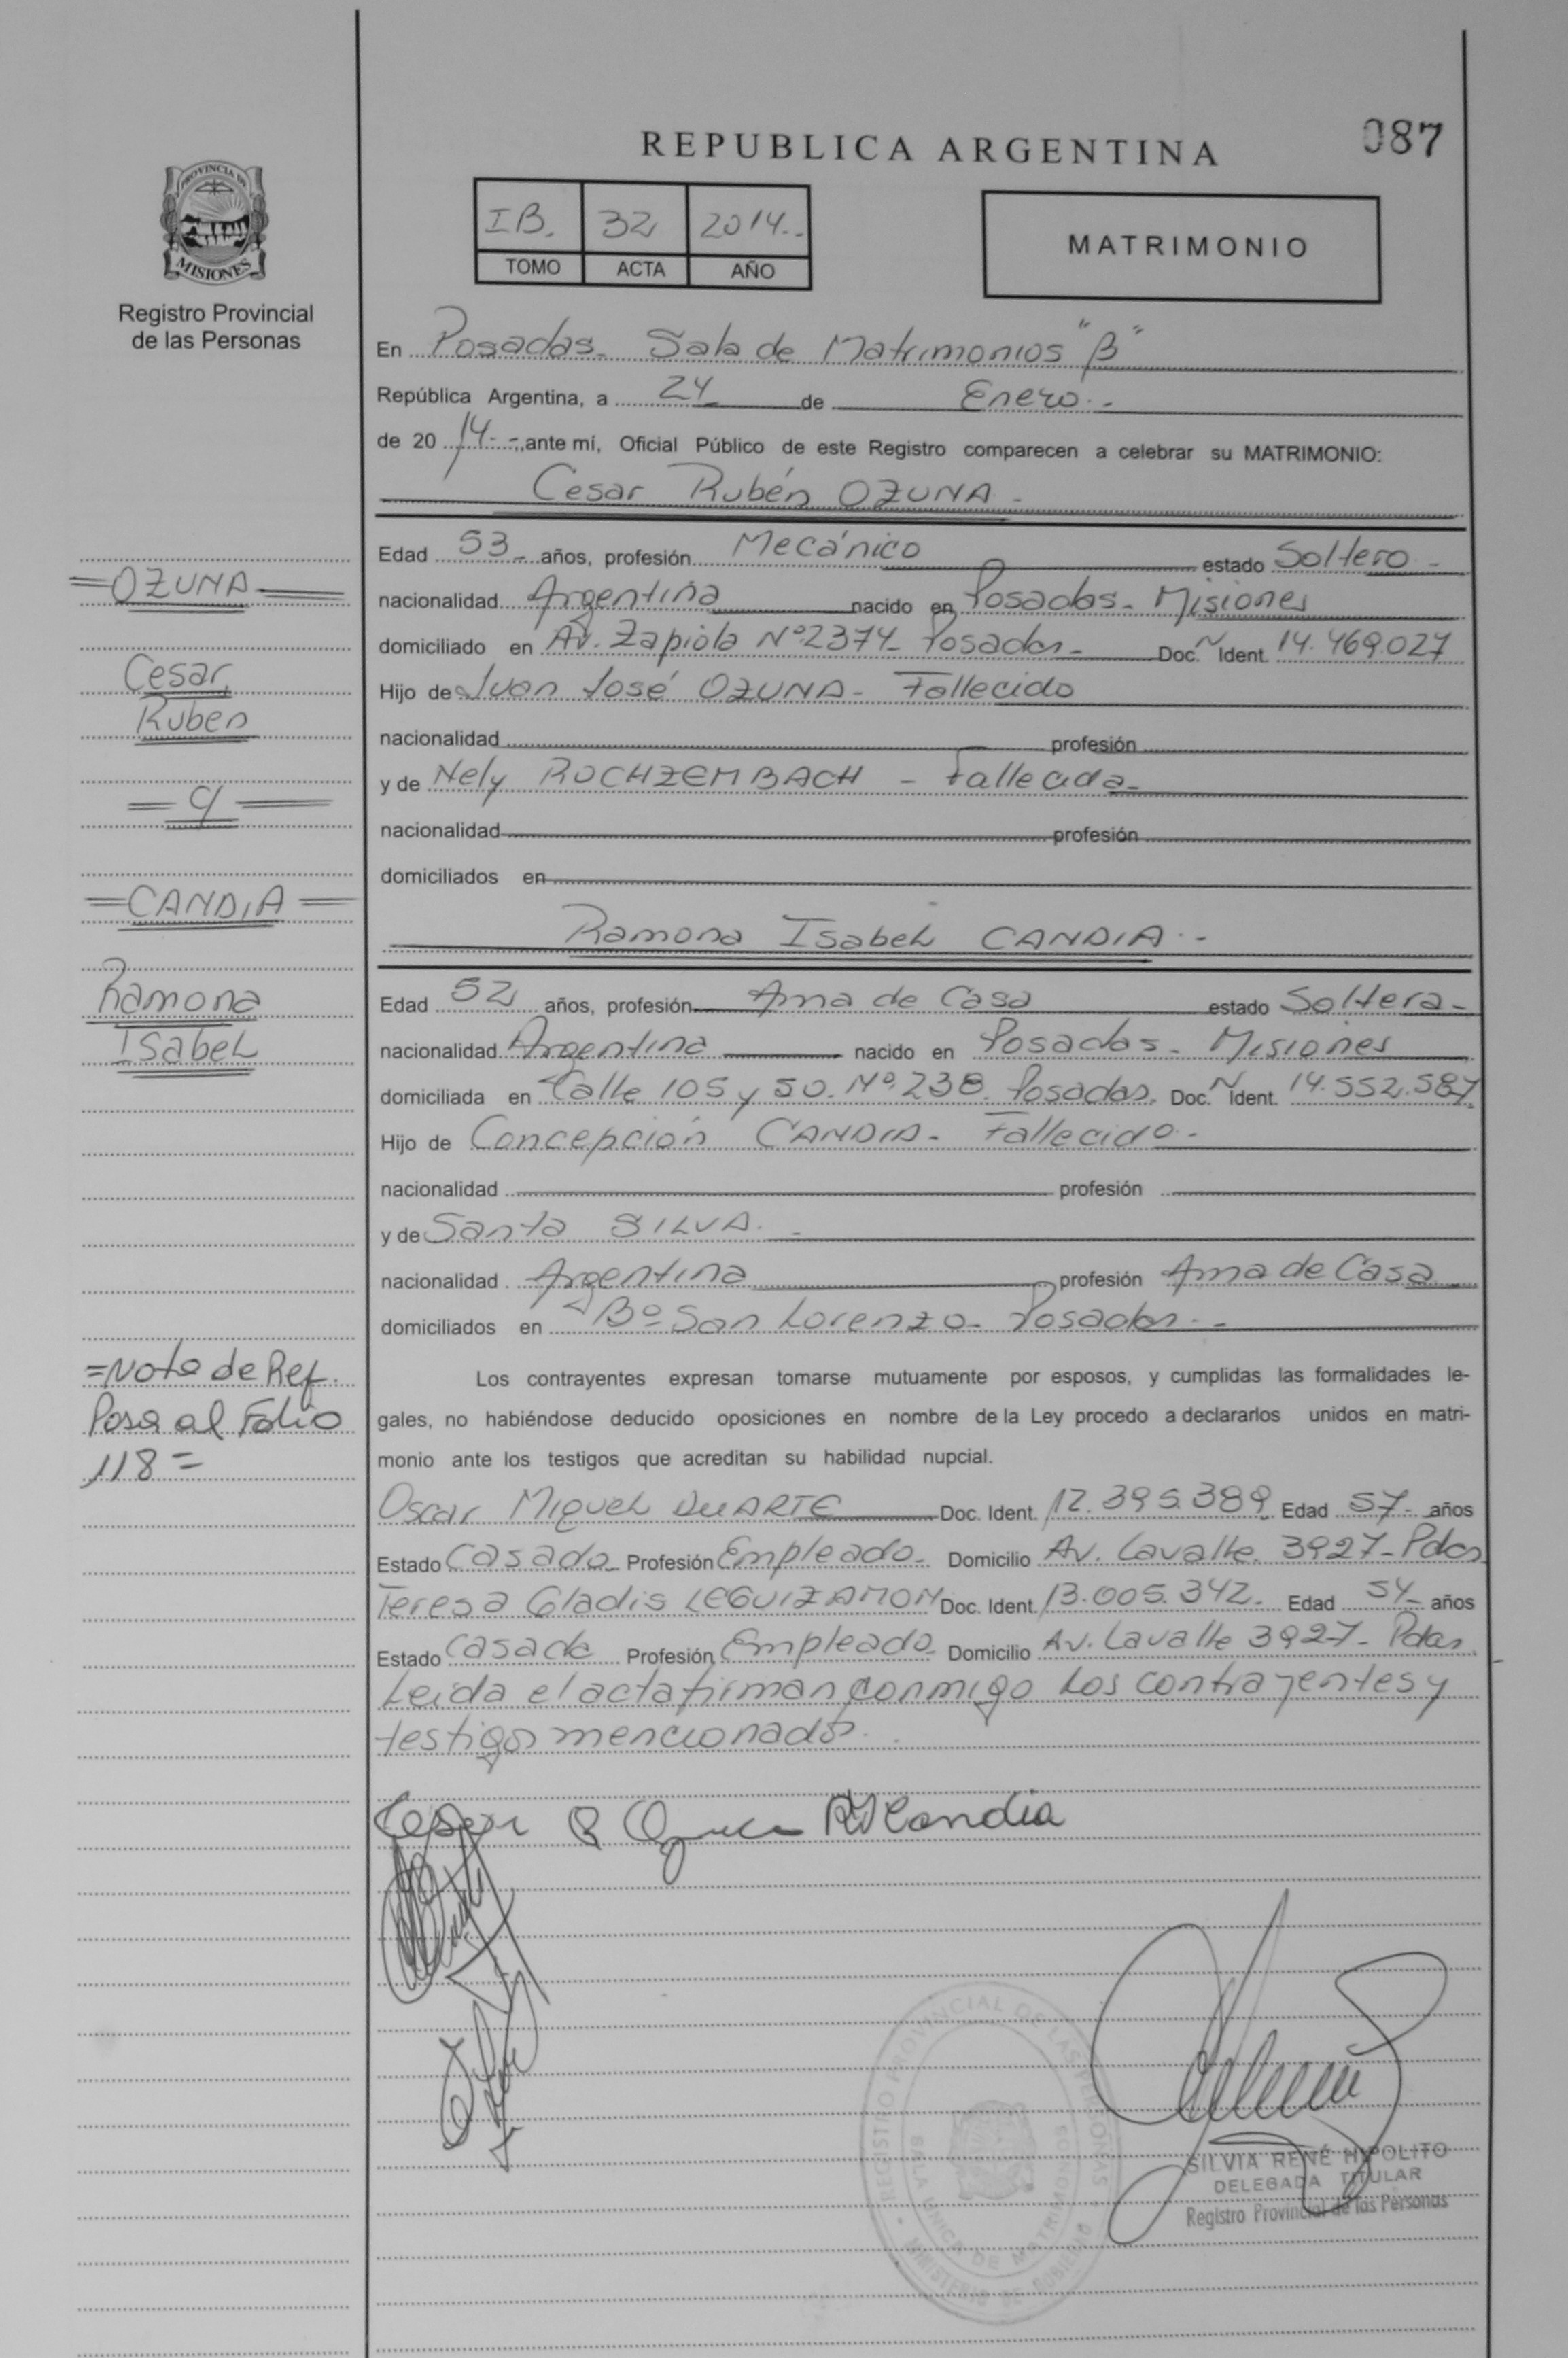 087
REPUBLICA ARGENTINA
PROVINCIA DE
MISIONES
Registro Provincial
de las Personas
IB. 32 2014.-
TOMO ACTA AÑO
MATRIMONIO
En Posadas- Sala de Matrimonios "B"
República Argentina, a 24 de Enero.-
de 20 14.- ,ante mí, Oficial Público de este Registro comparecen a celebrar su MATRIMONIO:
Cesar Rubén OZUNA -
Edad 53- años, profesión Mecánico estado Soltero -
nacionalidad Argentina nacido en Posadas- Misiones
domiciliado en Av. Zapiola Nº2374- Posadas- Doc. Ident. 14.469.027
Hijo de Juan José OZUNA- Fallecido
nacionalidad profesión
y de Nely ROCHZEMBACH - Fallecida-
nacionalidad profesión
domiciliados en
Ramona Isabel CANDIA.-
Edad 52 años, profesión Ama de Casa estado Soltera-
nacionalidad Argentina nacido en Posadas- Misiones
domiciliada en Calle 105 y 50. Nº.238. Posadas. Doc. Ident. 14.552.587.
Hijo de Concepción CANDIA- Fallecido-
nacionalidad profesión
y de Santa SILVA.-
nacionalidad Argentina profesión Ama de Casa
domiciliados en Bº San Lorenzo- Posadas.-
Los contrayentes expresan tomarse mutuamente por esposos, y cumplidas las formalidades le-
gales, no habiéndose deducido oposiciones en nombre de la Ley procedo a declararlos unidos en matri-
monio ante los testigos que acreditan su habilidad nupcial.
Oscar Miguel DUARTE Doc. Ident. 12.395.389. Edad 57- años
Estado Casado- Profesión Empleado- Domicilio Av. Lavalle 3927- Pdas
Teresa Gladis LEGUIZAMON Doc. Ident. 13.005.342- Edad 54- años
Estado Casada Profesión Empleado- Domicilio Av. Lavalle 3927- Pdas.
Leida el acta firman conmigo los contrayentes y
testigos mencionados.
=OZUNA=
Cesar
Ruben
=c/=
=CANDIA=
Ramona
Isabel
=Nota de Ref.
Pasa al Folio
118=
Cesar R Ozuna RI Candia
REGISTRO PROVINCIAL DE LAS PERSONAS
SALA UNICA DE MATRIMONIOS
MINISTERIO DE GOBIERNO
SILVIA RENÉ HIPOLITO
DELEGADA TITULAR
Registro Provincial de las Personas